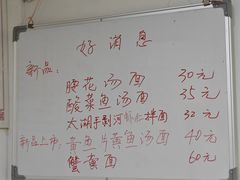 好消息
新品:
腰花汤面 30元
酸菜鱼汤面 35元
太湖手剥河虾仁拌面 32元
新品上市: 黄鱼片黄鱼汤面 40元
蟹黄面 60元